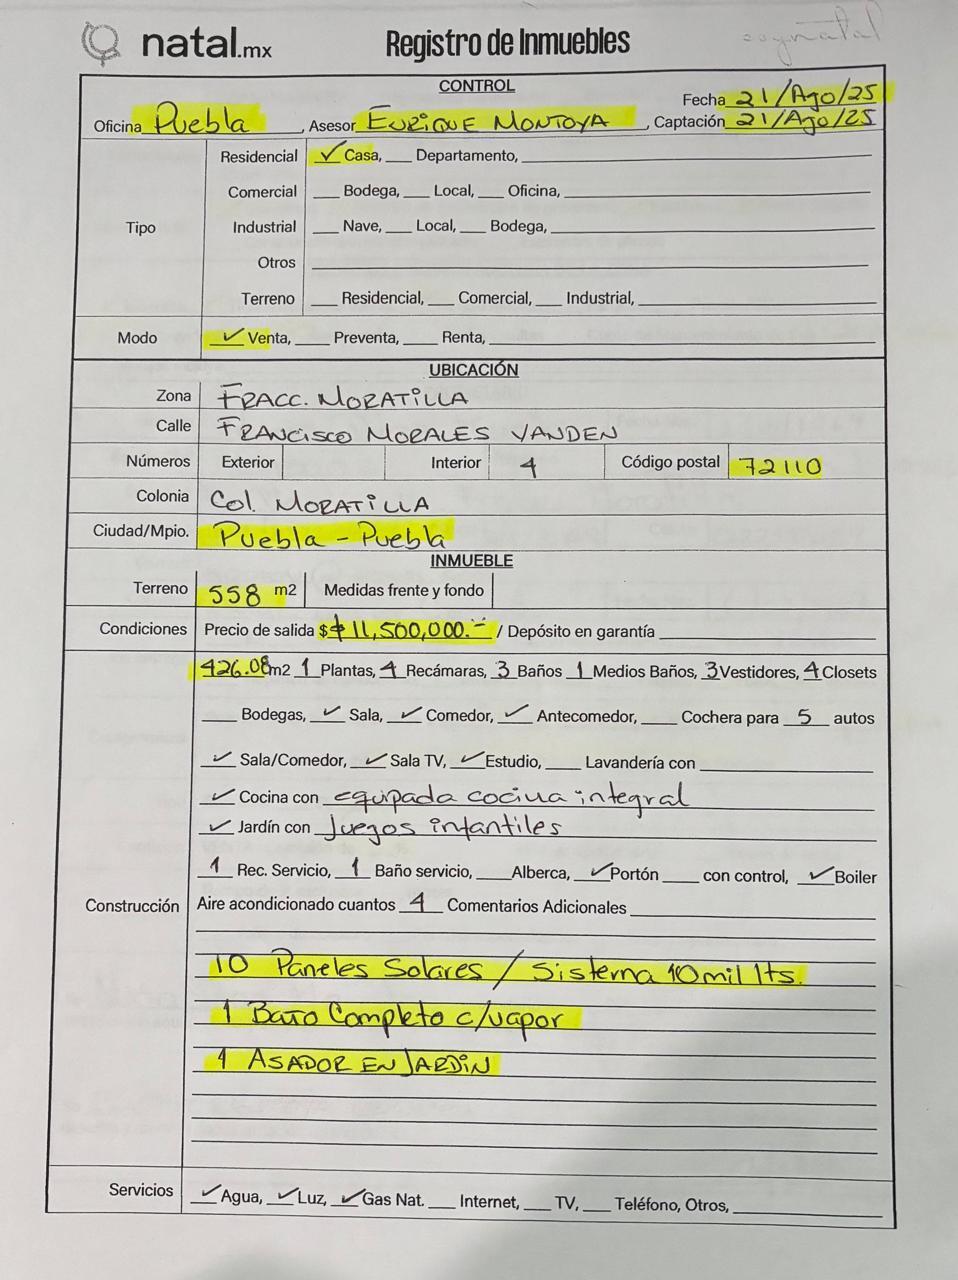 natal.mx Registro de Inmuebles soynatal
CONTROL
Fecha 21/Ago/25
Oficina Puebla, Asesor ENRIQUE MONTOYA, Captación 21/Ago/25
Tipo
Residencial ✓ Casa, ___ Departamento, ___
Comercial ___ Bodega, ___ Local, ___ Oficina, ___
Industrial ___ Nave, ___ Local, ___ Bodega, ___
Otros ___
Terreno ___ Residencial, ___ Comercial, ___ Industrial, ___
Modo ✓ Venta, ___ Preventa, ___ Renta, ___
UBICACIÓN
Zona FRACC. MORATILLA
Calle FRANCISCO MORALES VANDEN
Números Exterior Interior 4 Código postal 72110
Colonia Col. MORATILLA
Ciudad/Mpio. Puebla - Puebla
INMUEBLE
Terreno 558 m2 Medidas frente y fondo
Condiciones Precio de salida $ 11,500,000.- / Depósito en garantía ___
Construcción
426.08 m2 1 Plantas, 4 Recámaras, 3 Baños 1 Medios Baños, 3 Vestidores, 4 Closets
___ Bodegas, ✓ Sala, ✓ Comedor, ✓ Antecomedor, ___ Cochera para 5 autos
✓ Sala/Comedor, ✓ Sala TV, ✓ Estudio, ___ Lavandería con ___
✓ Cocina con equipada cocina integral
✓ Jardín con Juegos infantiles
1 Rec. Servicio, 1 Baño servicio, ___ Alberca, ✓ Portón ___ con control, ✓ Boiler
Aire acondicionado cuantos 4 Comentarios Adicionales ___
10 Paneles Solares / Sistema 10 mil lts.
1 Baño Completo c/vapor
1 ASADOR EN JARDIN
Servicios ✓ Agua, ✓ Luz, ✓ Gas Nat. ___ Internet, ___ TV, ___ Teléfono, Otros, ___